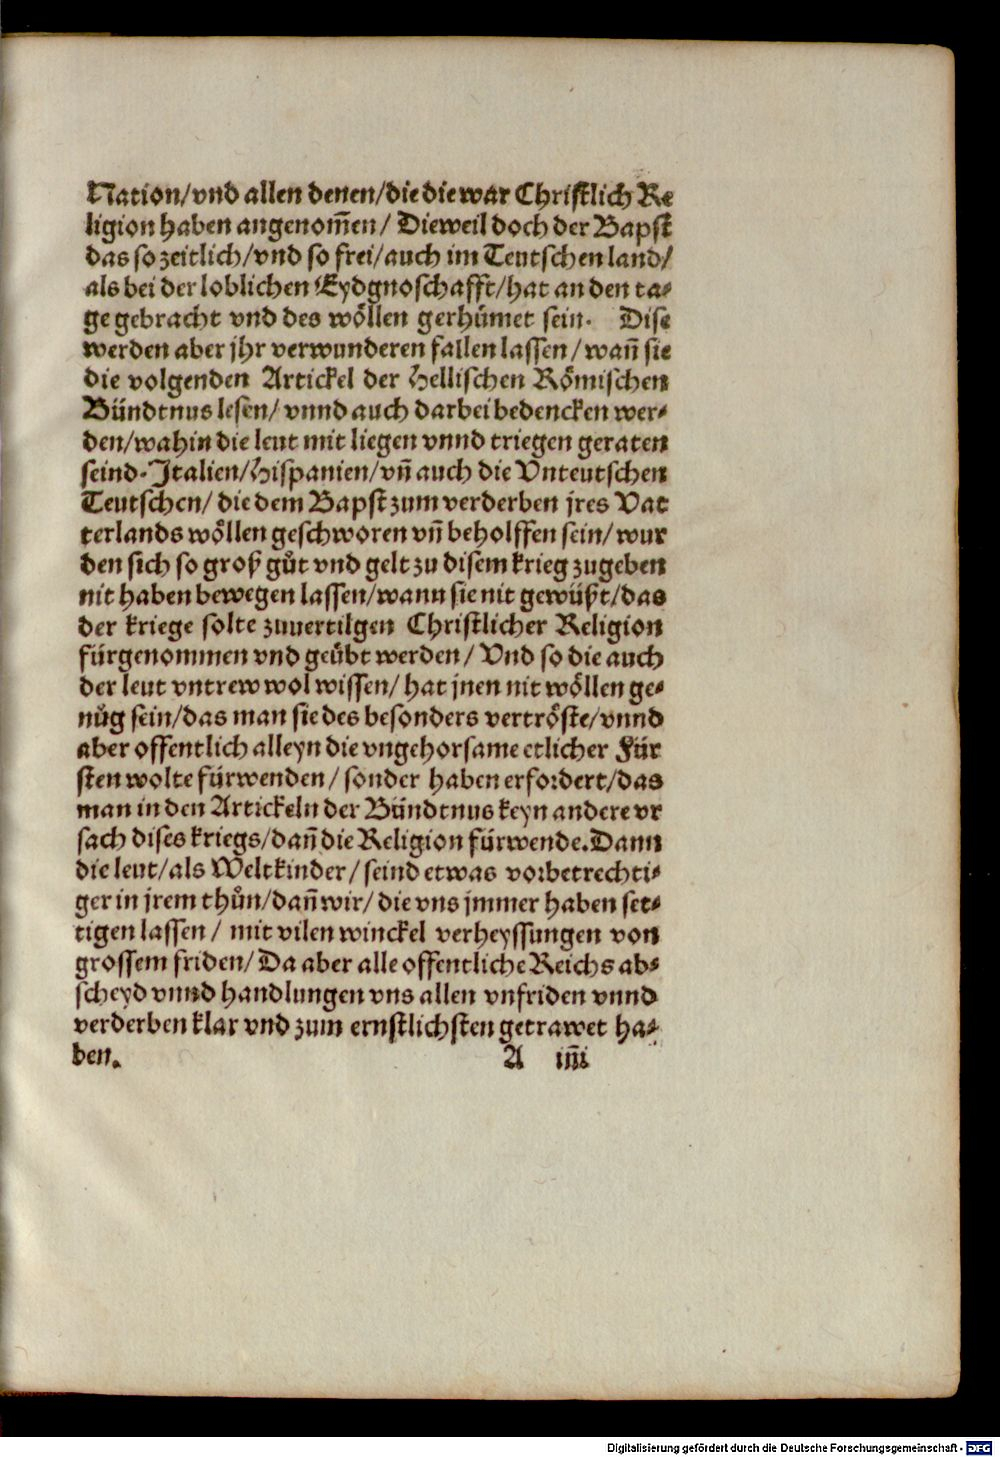 Nation/vnd allen denen/die die war Christlich Re
ligion haben angenom̃en/ Dieweil doch der Bapst
das so zeitlich/vnd so frei/auch im Teutschen land/
als bei der loblichen Eydgnoschafft/hat an den ta⸗
ge gebracht vnd des wöllen gerhümet sein. Dise
werden aber jhr verwunderen fallen lassen/wañ sie
die volgenden Artickel der Hellischen Römischen
Bündtnus lesen/ vnnd auch darbei bedencken wer⸗
den/wahin die leut mit liegen vnnd triegen geraten
seind. Italien/Hispanien/vñ auch die Vnteutschen
Teutschen/ die dem Bapst zum verderben jres Vat
terlands wöllen geschworen vñ beholffen sein/ wur
den sich so groß gůt vnd gelt zu disem krieg zugeben
nit haben bewegen lassen/wann sie nit gewüßt/das
der kriege solte zuuertilgen Christlicher Religion
fürgenommen vnd geübt werden/ Vnd so die auch
der leut vntrew wol wissen/ hat jnen nit wöllen ge⸗
nůg sein/das man sie des besonders vertröste/vnnd
aber offentlich alleyn die vngehorsame etlicher Für
sten wolte fürwenden/ sonder haben erfordert/das
man in den Artickeln der Bündtnus keyn andere vr
sach dises kriegs/dañ die Religion fürwende. Dann
die leut/als Weltkinder/ seind etwas vorbetrechti⸗
ger in jrem thůn/dañ wir/ die vns jmmer haben set⸗
tigen lassen/ mit vilen winckel verheyssungen von
grossem friden/ Da aber alle offentliche Reichs ab⸗
scheyd vnnd handlungen vns allen vnfriden vnnd
verderben klar vnd zum ernstlichsten getrawet ha⸗
ben. A iiii
Digitalisierung gefördert durch die Deutsche Forschungsgemeinschaft - DFG